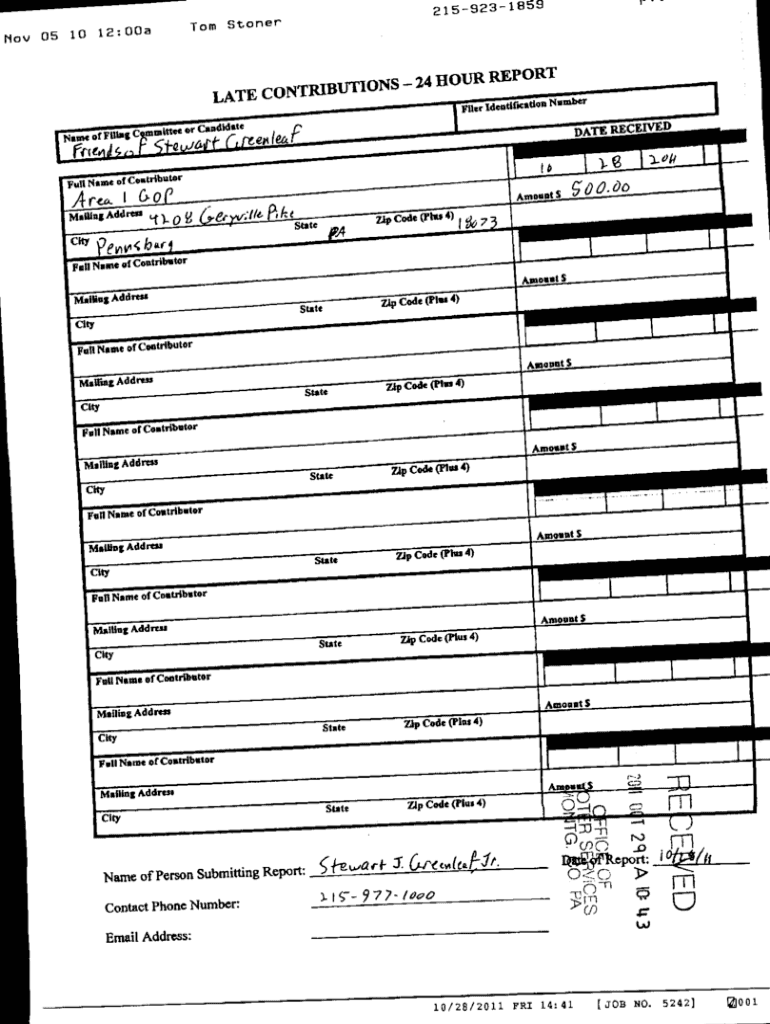 Nov 05 10 12:00a Tom Stoner 215-923-1859
LATE CONTRIBUTIONS – 24 HOUR REPORT
Name of Filing Committee or Candidate Filer Identification Number
Friends of Stewart Greenleaf
DATE RECEIVED
Full Name of Contributor
Area 1 GOP 10 28 2011
Mailing Address 4208 Geryville Pike Amount $ 500.00
City Pennsburg State PA Zip Code (Plus 4) 18073
Full Name of Contributor
Mailing Address Amount $
City State Zip Code (Plus 4)
Full Name of Contributor
Mailing Address Amount $
City State Zip Code (Plus 4)
Full Name of Contributor
Mailing Address Amount $
City State Zip Code (Plus 4)
Full Name of Contributor
Mailing Address Amount $
City State Zip Code (Plus 4)
Full Name of Contributor
Mailing Address Amount $
City State Zip Code (Plus 4)
Full Name of Contributor
Mailing Address Amount $
City State Zip Code (Plus 4)
Full Name of Contributor
Mailing Address Amount $
City State Zip Code (Plus 4)
RECEIVED
2011 OCT 29 A 10: 43
OFFICE OF
VOTER SERVICES
MONTG. CO PA
Name of Person Submitting Report: Stewart J. Greenleaf, Jr. Date of Report: 10/28/11
Contact Phone Number: 215-977-1000
Email Address:
10/28/2011 FRI 14:41 [JOB NO. 5242] 001